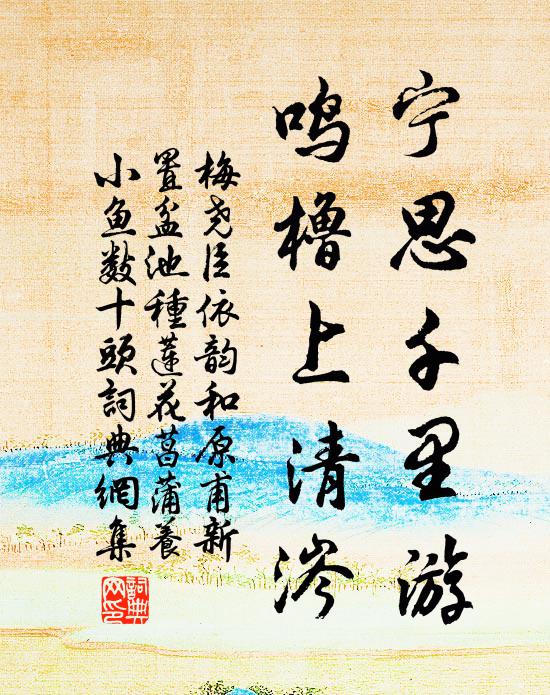 宁思千里游
鸣橹上清涔
梅尧臣依韵和原甫新
置盆池種蓮花菖蒲養
小鱼数十頭詞典網集